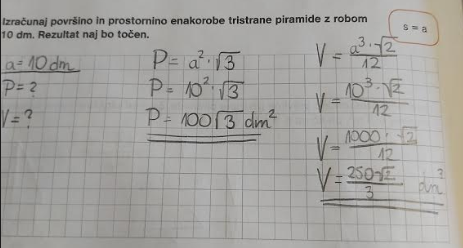 Izračunaj površino in prostornino enakorobe tristrane piramide z robom
10 dm. Rezultat naj bo točen.
s = a
a = 10 dm
P = ?
V = ?
P = a² · √3
P = 10² · √3
P = 100√3 dm²
V = a³ · √2 / 12
V = 10³ · √2 / 12
V = 1000 · √2 / 12
V = 250√2 / 3 dm³